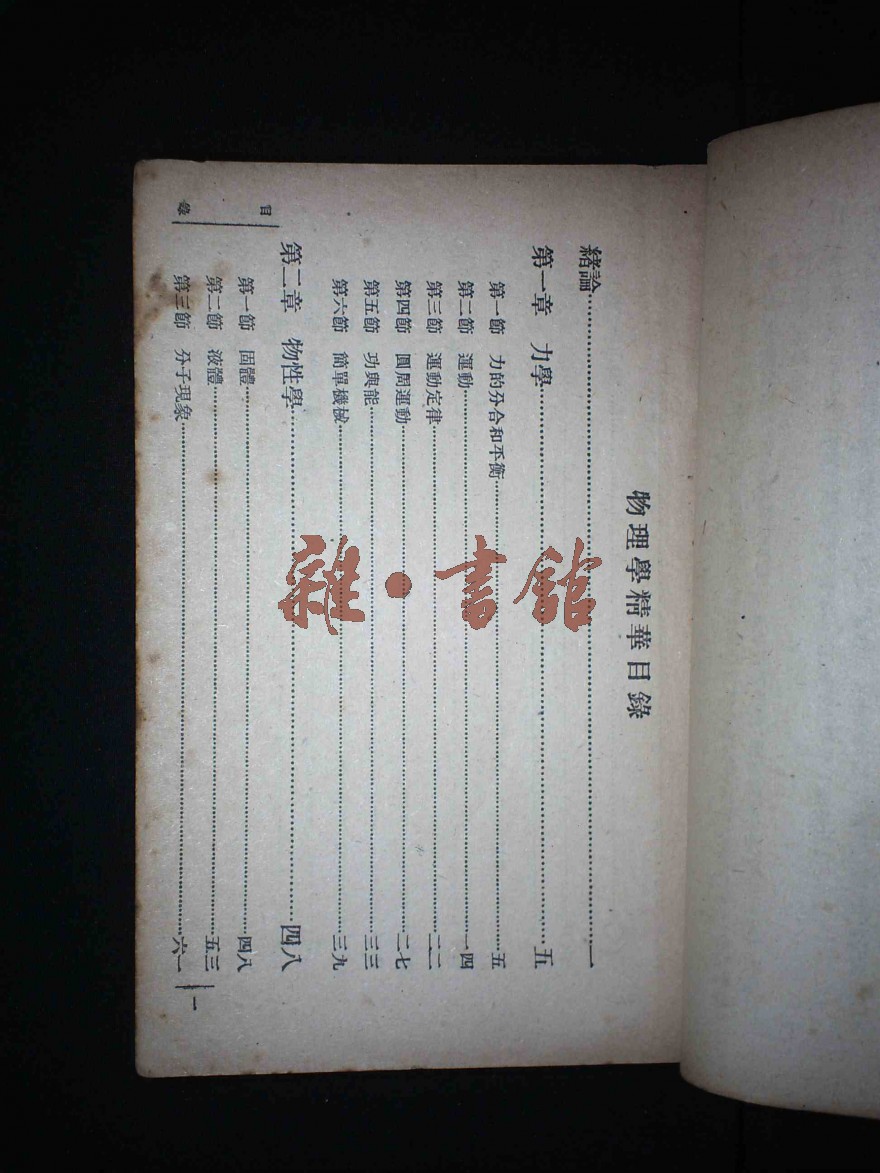 物理學精華目錄
緒論……一
第一章 力學……五
第一節 力的分合和平衡……五
第二節 運動……一四
第三節 運動定律……二二
第四節 圓周運動……二七
第五節 功與能……三三
第六節 簡單機械……三九
第二章 物性學……四八
第一節 固體……四八
第二節 液體……五三
第三節 分子現象……六一
目錄
一
雜•書館